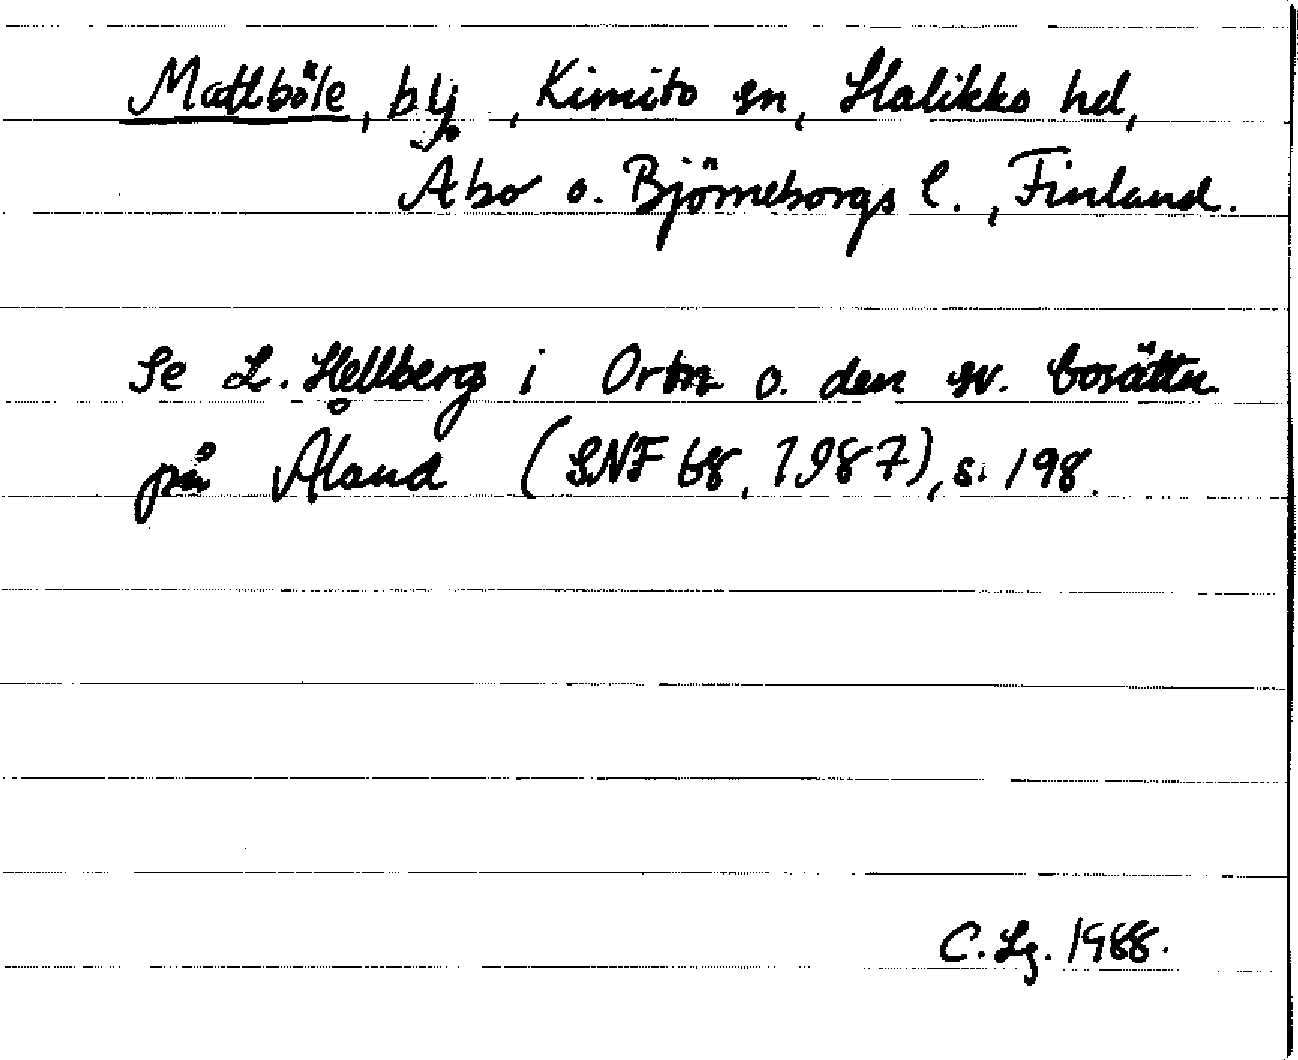 Matlböle, by, Kimito sn, Halikko hd,
Åbo o. Björneborgs l., Finland.
Se L. Hellberg i Ortn o. den sv. bosättn
på Åland (SNF 68, 1987), s. 198.
C. Lg. 1988.